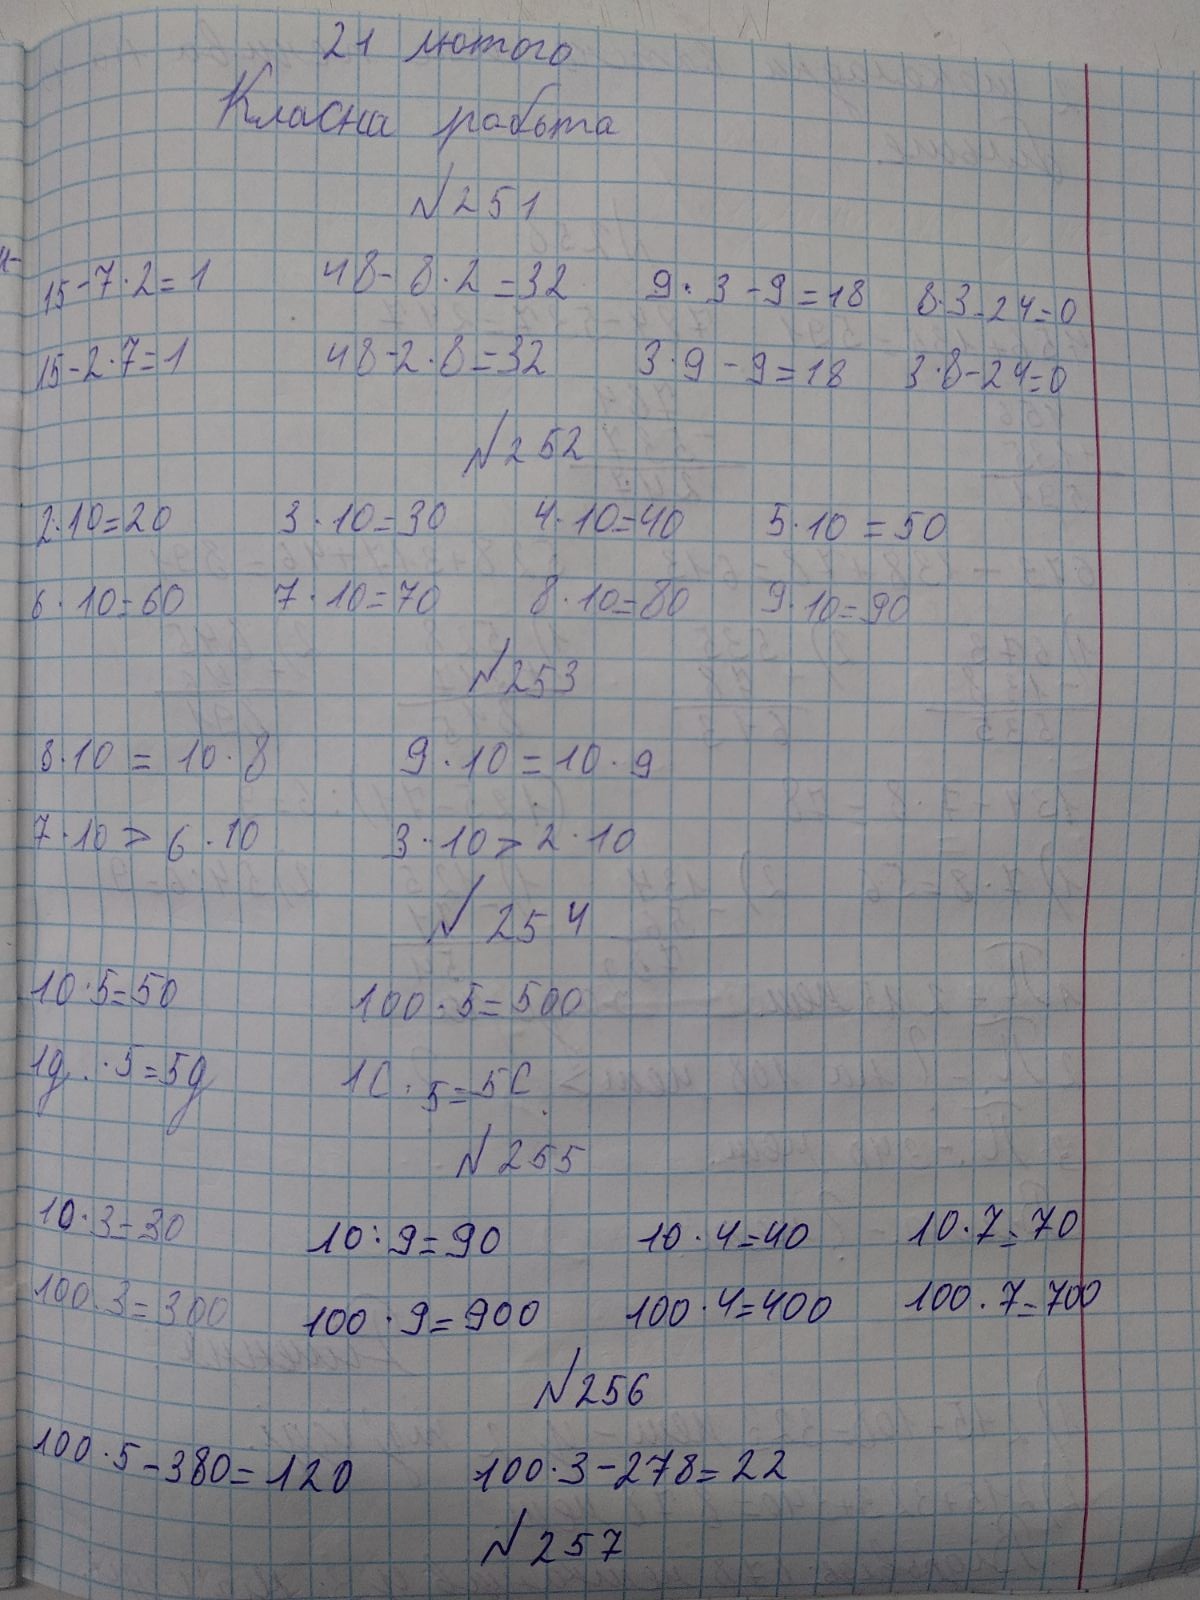 21 лютого
Класна робота
№251
15-7·2=1 48-8·2=32 9·3-9=18 8·3-24=0
15-2·7=1 48-2·8=32 3·9-9=18 3·8-24=0
№252
2·10=20 3·10=30 4·10=40 5·10=50
6·10=60 7·10=70 8·10=80 9·10=90
№253
8·10=10·8 9·10=10·9
7·10>6·10 3·10>2·10
№254
10·5=50 100·5=500
1д.·5=5д 1С·5=5С.
№255
10·3=30 10·9=90 10·4=40 10·7=70
100·3=300 100·9=900 100·4=400 100·7=700
№256
100·5-380=120 100·3-278=22
№257